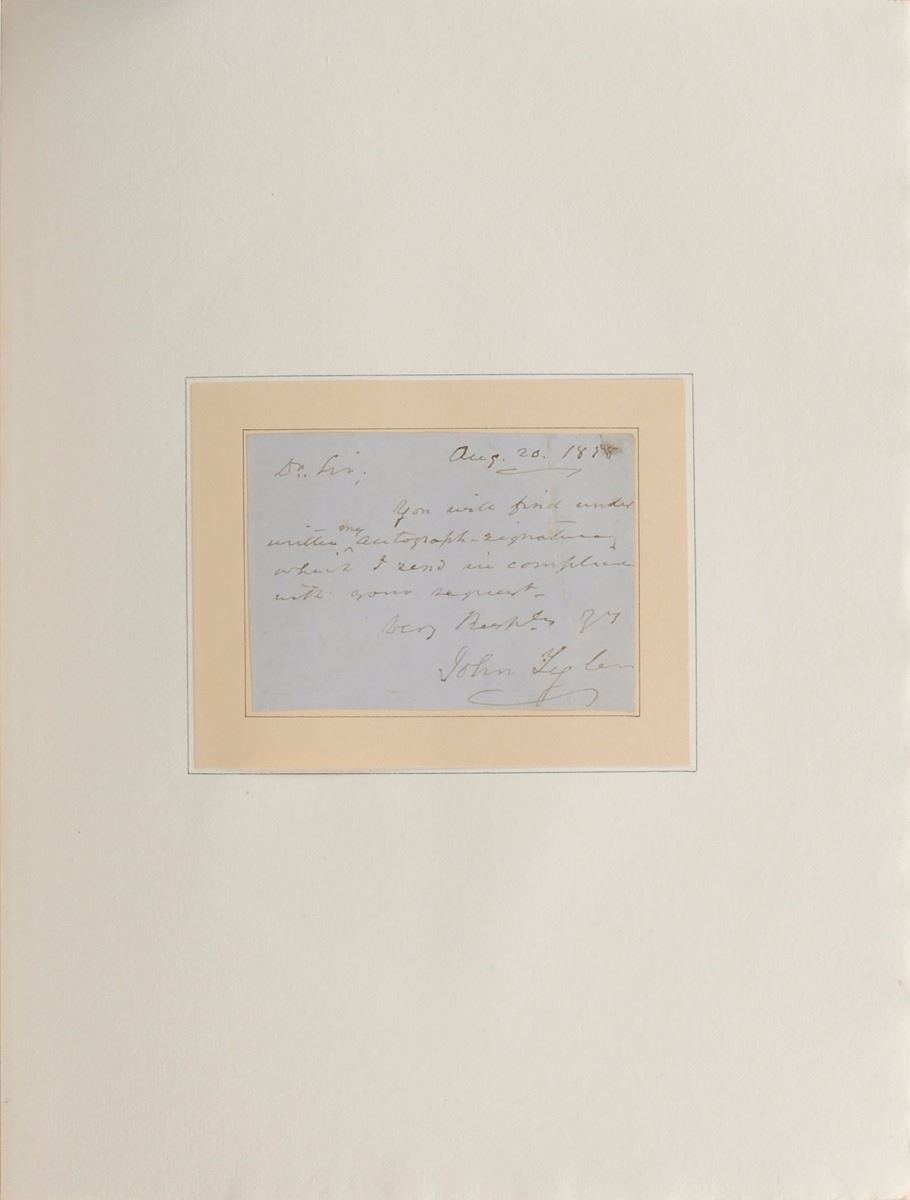 Aug. 20. 1858
Dr. Sir,
You will find under
written my autograph-signature,
which I send in compliance
with your request.
Very Respctly Yrs
John Tyler